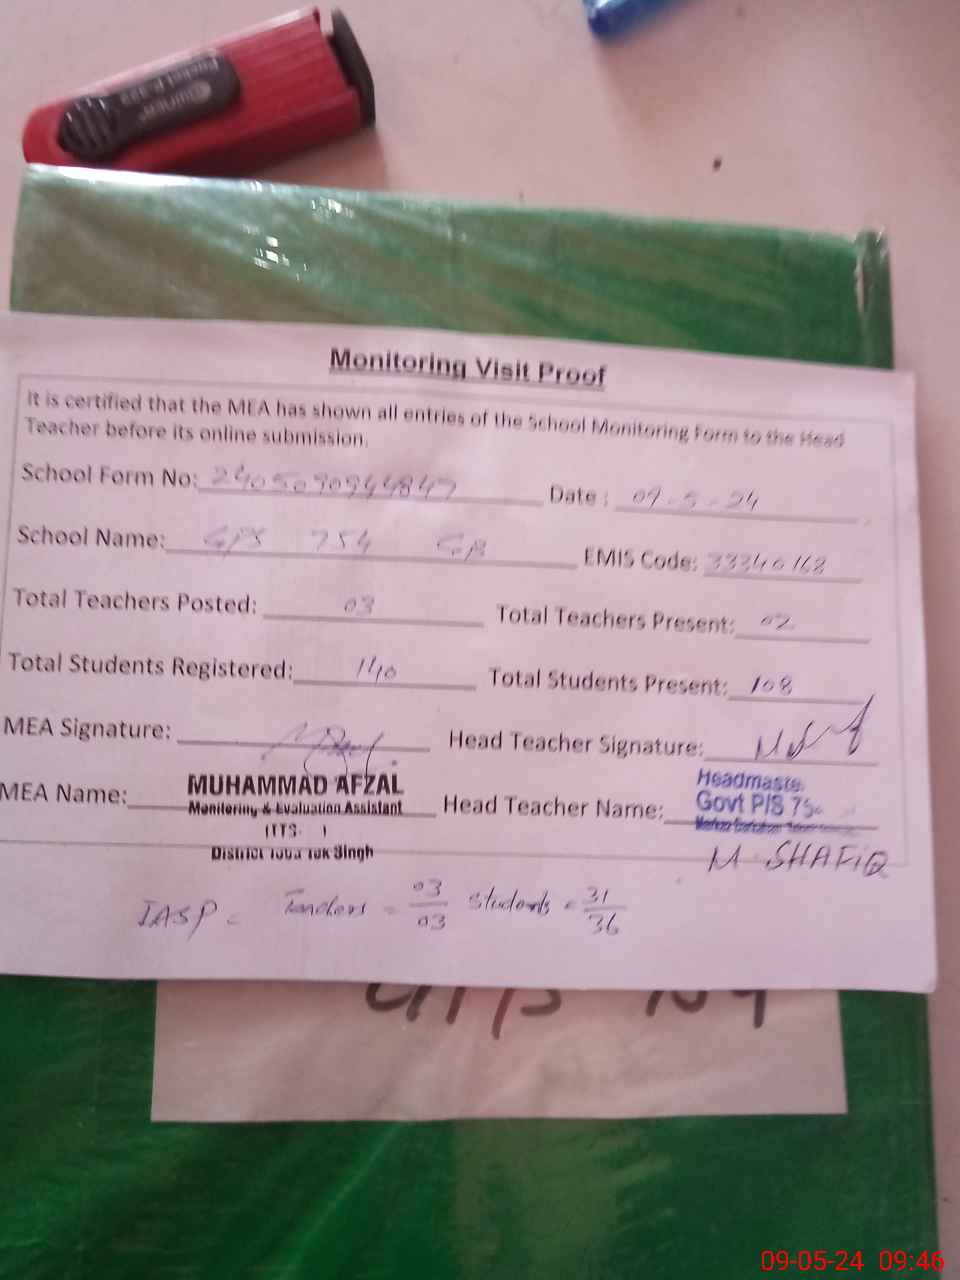 DINGLI
Pocket P-333
Monitoring Visit Proof
It is certified that the MEA has shown all entries of the School Monitoring Form to the Head
Teacher before its online submission.
School Form No: 2405090944847 Date : 09-5-24
School Name: GPS 754 GB EMIS Code: 33340168
Total Teachers Posted: 03 Total Teachers Present: 02
Total Students Registered: 140 Total Students Present: 108
MEA Signature: Head Teacher Signature:
MEA Name: MUHAMMAD AFZAL Head Teacher Name: Headmaste
Monitoring & Evaluation Assistant Govt P/S 75
(TTS- )
District Toba Tek Singh
M. SHAFIQ
IASP = Teachers = 03/03 Students = 31/36
09-05-24 09:46